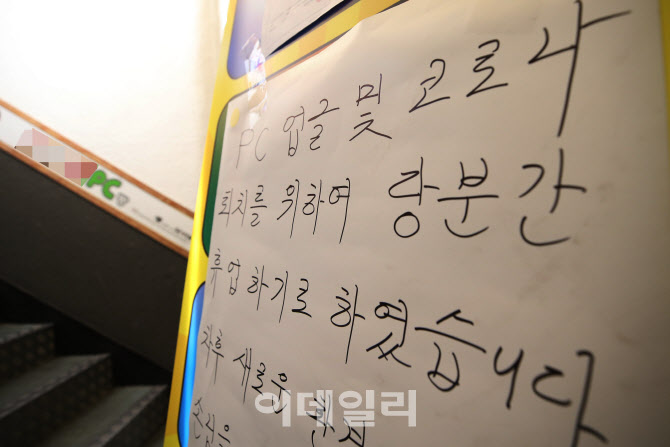 PC 업글 및 코로나
퇴치를 위하여 당분간
휴업 하기로 하였습니다
차후 새로운
손님을
PC
이데일리